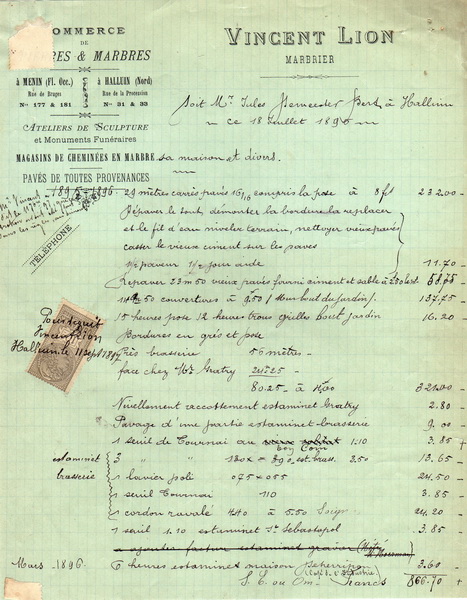 COMMERCE
DE
& MARBRES
à MENIN (Fl. Occ.)
Rue de Bruges
Nos 177 & 181
à HALLUIN (Nord)
Rue de la Procession
Nos 31 & 33
ATELIERS DE SCULPTURE
et Monuments Funéraires
MAGASINS DE CHEMINÉES EN MARBRE
PAVÉS DE TOUTES PROVENANCES
TÉLÉPHONE
VINCENT LION
MARBRIER
Soit Mr Jules à Halluin
ce 18 Juillet 189
sa maison et divers.
1895-1896
29 mètres carrés pavés 16/16 compris la pose à 8 f 232.00
Dépaver le tout, démonter la bordure la replacer
et le fil d'eau niveler terrain, nettoyer vieux pavés
casser le vieux ciment sur les pavés
paveur 1 1/2 jour aide 11.70
Repaver 23m50 vieux pavés fourni ciment et sable à 2.50 58.75
50 couvertures à 9.50 / Mur bout du jardin / 137.75
15 heures pose 12 heures trous grilles bout jardin 16.20
Bordures en grès et pose
Près brasserie 56 mètres
face chez Mr Gratry 24.25
80.25 à 4,00 321.00
Nivellement raccottement estaminet Gratry 2.80
Pavage d'une partie estaminet brasserie 9.00
1 seuil de Tournai au bon Coin 1.10 3.85
estaminet
brasserie
3 " " 130 = 390 est. brass. 3.50 13.65
1 lavier poli 075 x 055 24.50
1 seuil Tournai 110 3.85
1 cordon ravalé 440 à 5.50 24.20
1 seuil 1.10 estaminet St Sébastopol 3.85
Mars 1896 6 heures estaminet maison 3.60
S. E. ou Om. Francs 866.70
Pour acquit
Vincent Lion
Halluin le 11 Sept 1897